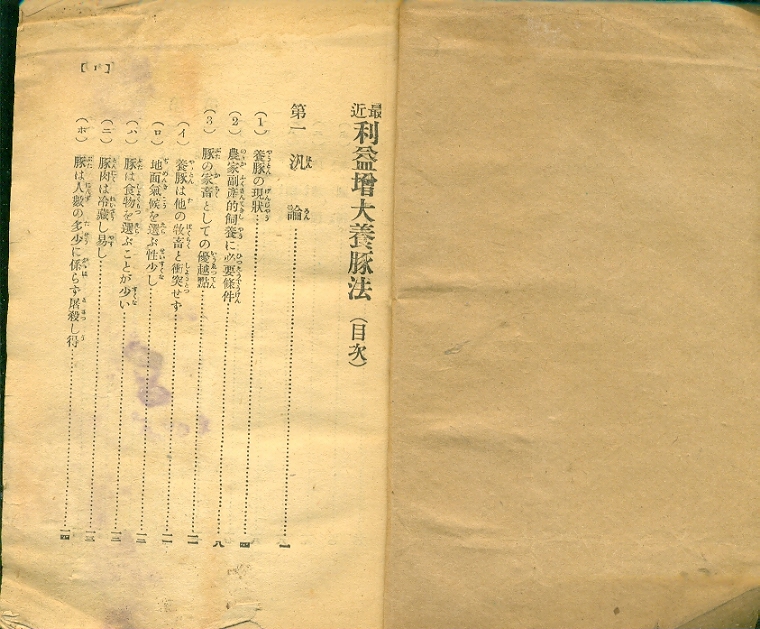 最近 利益增大養豚法 (目次)
第一 汎論 一
(1) 養豚の現狀 四
(2) 農家副產的飼養に必要條件 八
(3) 豚の家畜としての優越點 一一
(イ) 養豚は他の牧畜と衝突せず 一一
(ロ) 地面氣候を選ぶ性少し 一二
(ハ) 豚は食物を選ぶことが少い 一二
(ニ) 豚肉は冷藏し易し 一三
(ホ) 豚は人數の多少に係らず屠殺し得 一四
[1]